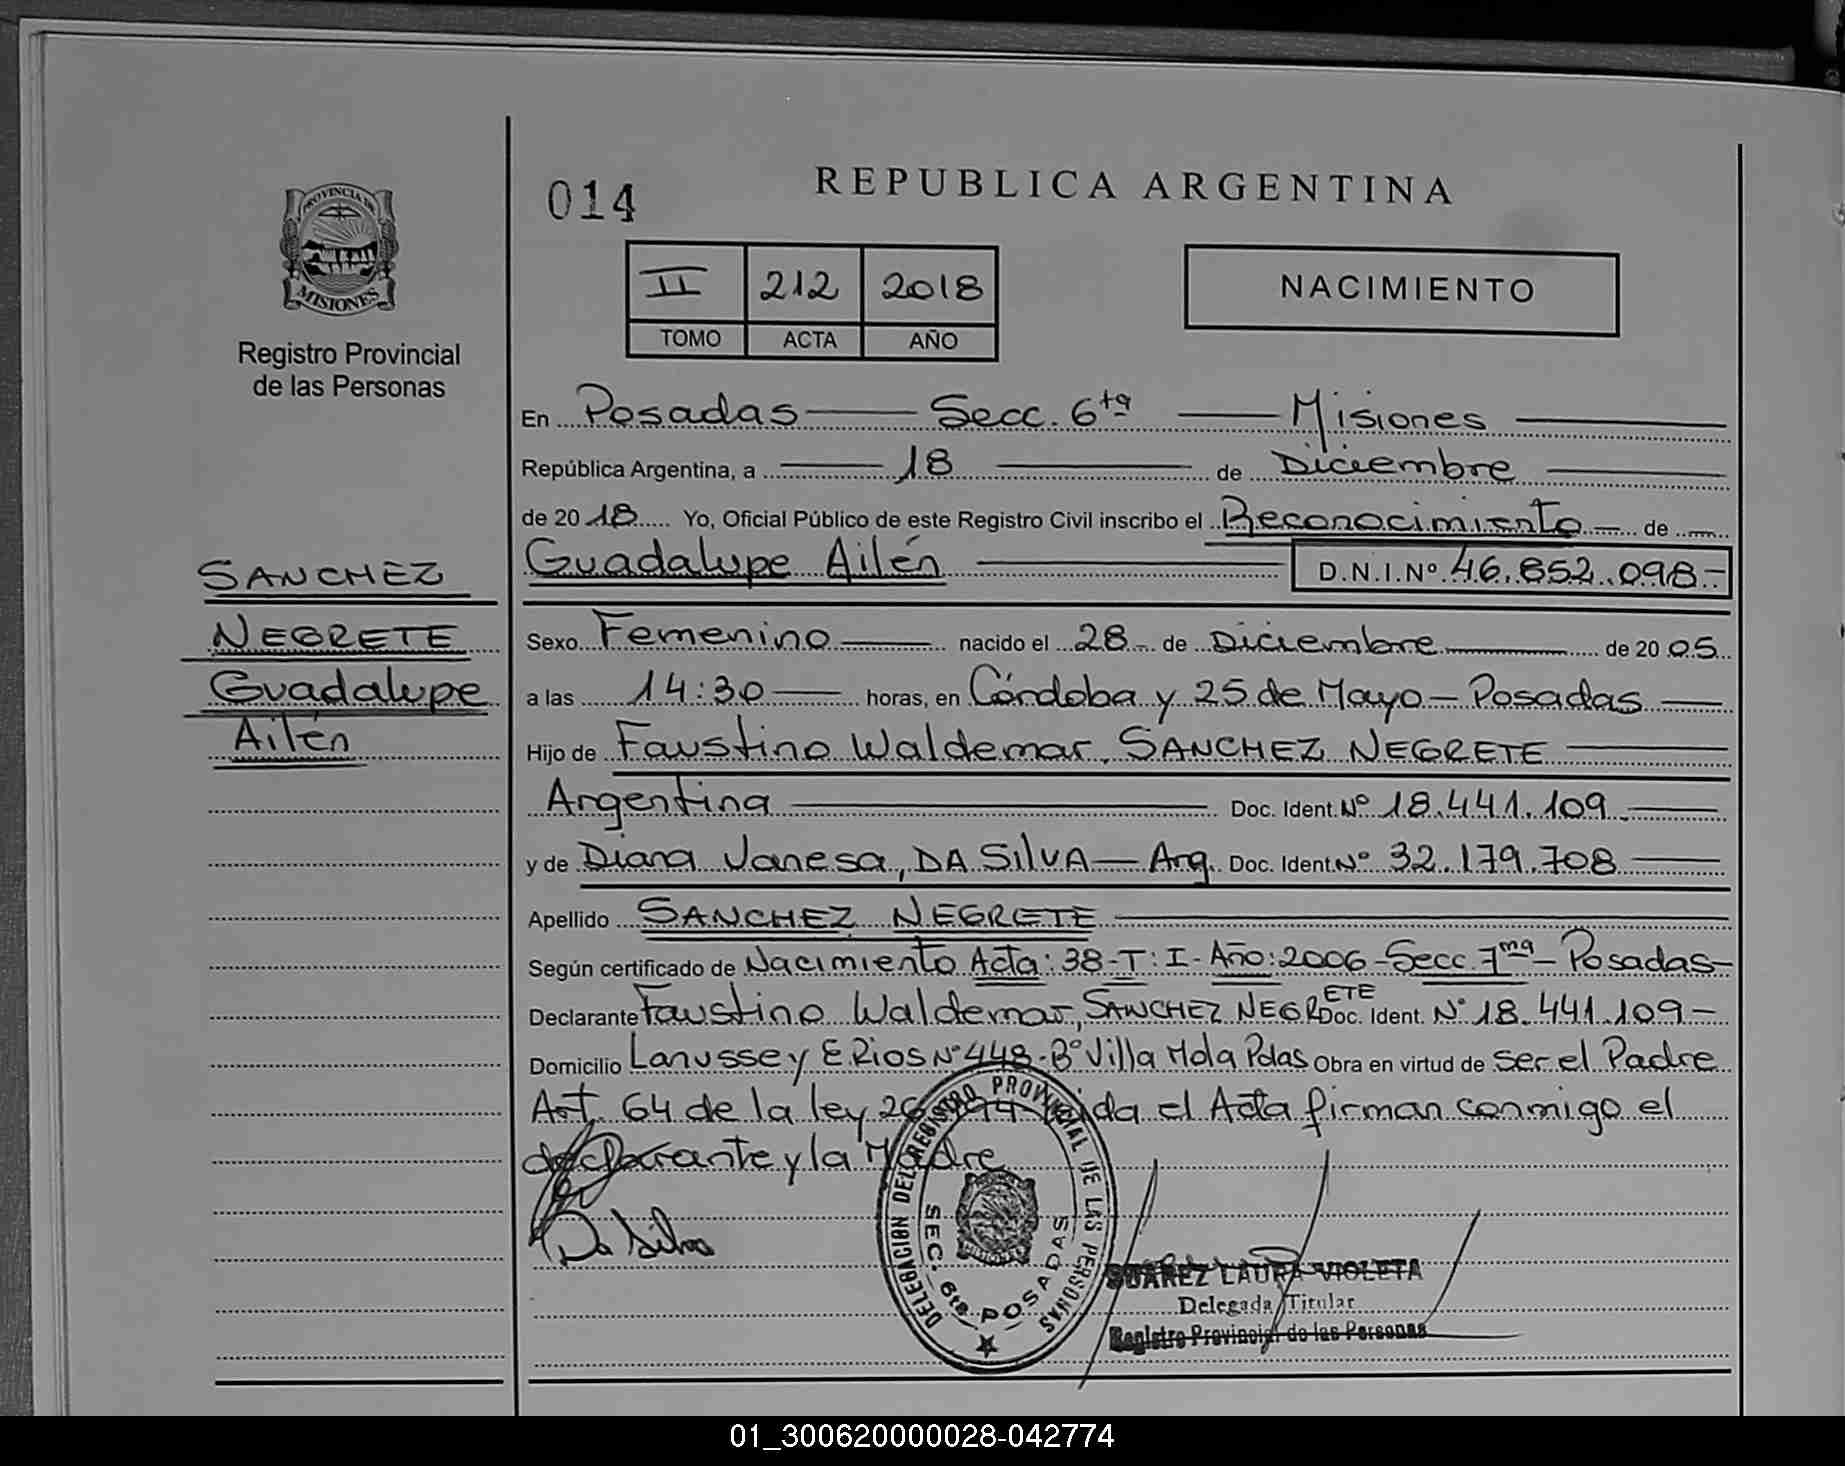 014
REPUBLICA ARGENTINA
II 212 2018
TOMO ACTA AÑO
NACIMIENTO
PROVINCIA DE
MISIONES
Registro Provincial
de las Personas
SANCHEZ
NEGRETE
Guadalupe
Ailén
En Posadas Secc. 6ta Misiones
República Argentina, a 18 de Diciembre
de 2018 Yo, Oficial Público de este Registro Civil inscribo el Reconocimiento de
Guadalupe Ailén D.N.I.Nº 46.852.098-
Sexo Femenino nacido el 28 de Diciembre de 2005
a las 14:30 horas, en Córdoba y 25 de Mayo - Posadas
Hijo de Faustino Waldemar, SANCHEZ NEGRETE
Argentina Doc. Ident. Nº 18.441.109
y de Diana Vanesa, DA SILVA - Arg. Doc. Ident. Nº 32.179.708
Apellido SANCHEZ NEGRETE
Según certificado de Nacimiento Acta: 38-T: I- Año: 2006 - Secc. 7ma - Posadas-
Declarante Faustino Waldemar, SANCHEZ NEGRETE Doc. Ident. Nº 18.441.109-
Domicilio Lanusse y E.Rios Nº 448-Bº Villa Mola Pdas Obra en virtud de ser el Padre
Art. 64 de la ley el Acta firman conmigo el
declarante y la Madre
Da Silva
DELEGACION DEL REGISTRO PROVINCIAL DE LAS PERSONAS
SEC. 6ta. POSADAS
MISIONES
SUAREZ LAURA VIOLETA
Delegada Titular
Registro Provincial de las Personas
01_300620000028-042774